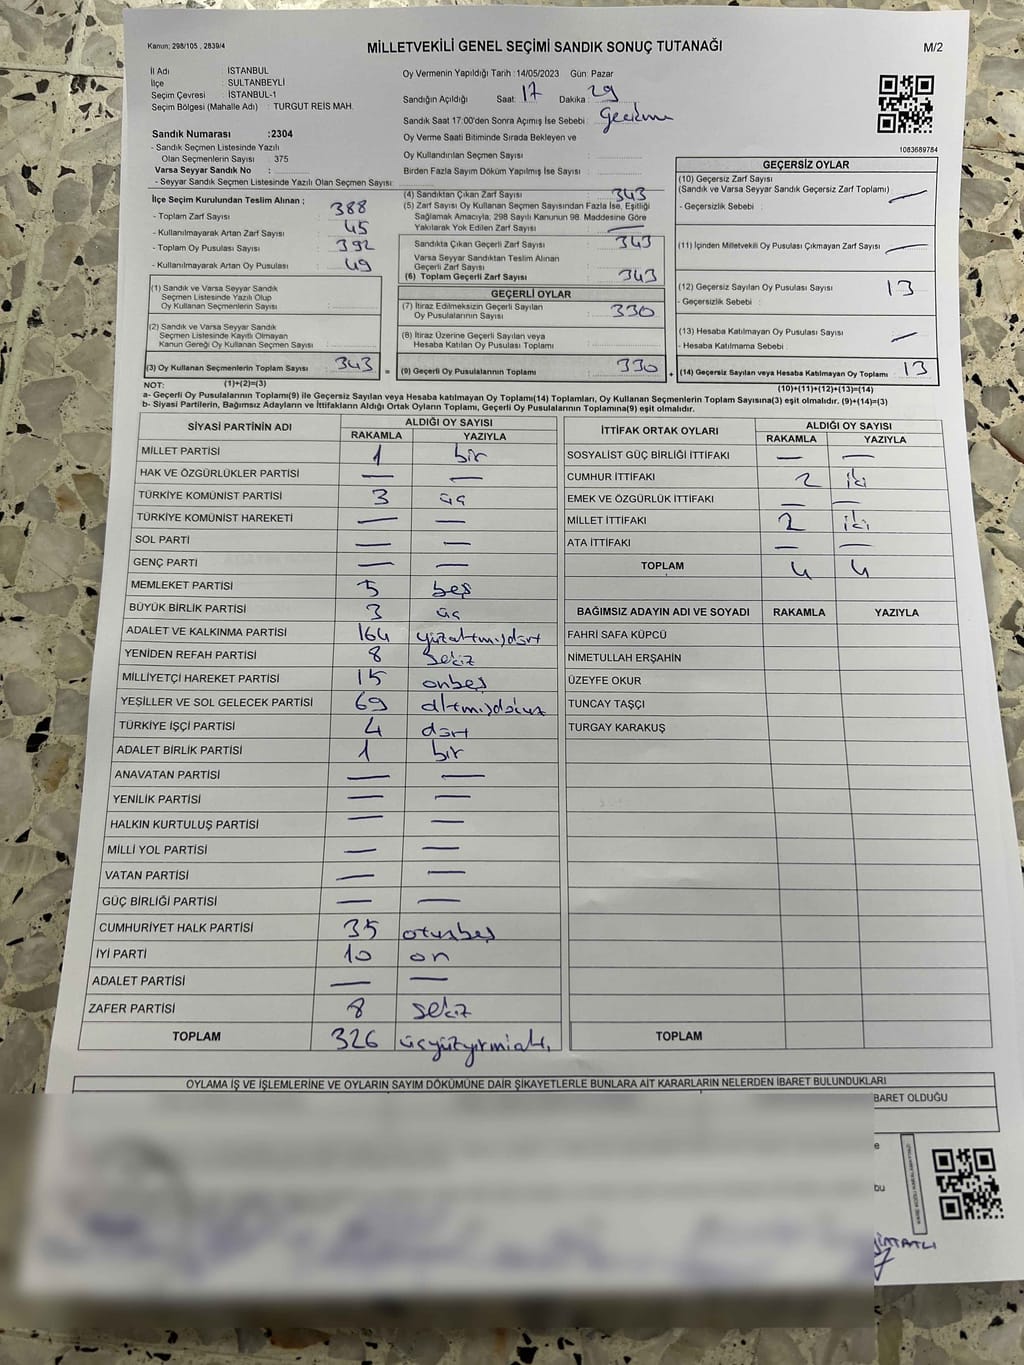 Kanun; 298/105 , 2839/4
MİLLETVEKİLİ GENEL SEÇİMİ SANDIK SONUÇ TUTANAĞI
M/2
İl Adı : ISTANBUL
İlçe : SULTANBEYLİ
Seçim Çevresi : İSTANBUL-1
Seçim Bölgesi (Mahalle Adı) : TURGUT REİS MAH.
Sandık Numarası :2304
- Sandık Seçmen Listesinde Yazılı
Olan Seçmenlerin Sayısı : 375
Varsa Seyyar Sandık No :
- Seyyar Sandık Seçmen Listesinde Yazılı Olan Seçmen Sayısı:
Oy Vermenin Yapıldığı Tarih :14/05/2023 Gün: Pazar
Sandığın Açıldığı Saat: 17 Dakika: 29
Sandık Saat 17:00'den Sonra Açımış İse Sebebi : Gecikme
Oy Verme Saati Bitiminde Sırada Bekleyen ve
Oy Kullandırılan Seçmen Sayısı :
Birden Fazla Sayım Döküm Yapılmış İse Sayısı :
1083689784
İlçe Seçim Kurulundan Teslim Alınan ;
- Toplam Zarf Sayısı : 388
- Kullanılmayarak Artan Zarf Sayısı : 45
- Toplam Oy Pusulası Sayısı : 392
- Kullanılmayarak Artan Oy Pusulası : 49
(1) Sandık ve Varsa Seyyar Sandık
Seçmen Listesinde Yazılı Olup
Oy Kullanan Seçmenlerin Sayısı :
(2) Sandık ve Varsa Seyyar Sandık
Seçmen Listesinde Kayıtlı Olmayan
Kanun Gereği Oy Kullanan Seçmen Sayısı :
(3) Oy Kullanan Seçmenlerin Toplam Sayısı : 343 =
(4) Sandıktan Çıkan Zarf Sayısı : 343
(5) Zarf Sayısı Oy Kullanan Seçmen Sayısından Fazla İse, Eşitliği
Sağlamak Amacıyla; 298 Sayılı Kanunun 98. Maddesine Göre
Yakılarak Yok Edilen Zarf Sayısı : —
Sandıkta Çıkan Geçerli Zarf Sayısı : 343
Varsa Seyyar Sandıktan Teslim Alınan
Geçerli Zarf Sayısı :
(6) Toplam Geçerli Zarf Sayısı : 343
GEÇERLİ OYLAR
(7) İtiraz Edilmeksizin Geçerli Sayılan
Oy Pusulalarının Sayısı : 330
(8) İtiraz Üzerine Geçerli Sayılan veya
Hesaba Katılan Oy Pusulası Toplamı :
(9) Geçerli Oy Pusulalarının Toplamı : 330 +
GEÇERSİZ OYLAR
(10) Geçersiz Zarf Sayısı
(Sandık ve Varsa Seyyar Sandık Geçersiz Zarf Toplamı) : —
- Geçersizlik Sebebi :
(11) İçinden Milletvekili Oy Pusulası Çıkmayan Zarf Sayısı : —
(12) Geçersiz Sayılan Oy Pusulası Sayısı : 13
- Geçersizlik Sebebi :
(13) Hesaba Katılmayan Oy Pusulası Sayısı : —
- Hesaba Katılmama Sebebi :
(14) Geçersiz Sayılan veya Hesaba Katılmayan Oy Toplamı : 13
NOT: (1)+(2)=(3) (10)+(11)+(12)+(13)=(14)
a- Geçerli Oy Pusulalarının Toplamı(9) ile Geçersiz Sayılan veya Hesaba katılmayan Oy Toplamı(14) Toplamları, Oy Kullanan Seçmenlerin Toplam Sayısına(3) eşit olmalıdır. (9)+(14)=(3)
b- Siyasi Partilerin, Bağımsız Adayların ve İttifakların Aldığı Ortak Oyların Toplamı, Geçerli Oy Pusulalarının Toplamına(9) eşit olmalıdır.
SİYASİ PARTİNİN ADI ALDIĞI OY SAYISI
RAKAMLA YAZIYLA
MİLLET PARTİSİ 1 bir
HAK VE ÖZGÜRLÜKLER PARTİSİ — —
TÜRKİYE KOMÜNİST PARTİSİ 3 üç
TÜRKİYE KOMÜNİST HAREKETİ — —
SOL PARTİ — —
GENÇ PARTİ — —
MEMLEKET PARTİSİ 5 beş
BÜYÜK BİRLİK PARTİSİ 3 üç
ADALET VE KALKINMA PARTİSİ 164 yüzaltmışdört
YENİDEN REFAH PARTİSİ 8 Sekiz
MİLLİYETÇİ HAREKET PARTİSİ 15 onbeş
YEŞİLLER VE SOL GELECEK PARTİSİ 69 altmışdokuz
TÜRKİYE İŞÇİ PARTİSİ 4 dört
ADALET BİRLİK PARTİSİ 1 bir
ANAVATAN PARTİSİ — —
YENİLİK PARTİSİ — —
HALKIN KURTULUŞ PARTİSİ — —
MİLLİ YOL PARTİSİ — —
VATAN PARTİSİ — —
GÜÇ BİRLİĞİ PARTİSİ — —
CUMHURİYET HALK PARTİSİ 35 otuzbeş
İYİ PARTİ 10 on
ADALET PARTİSİ — —
ZAFER PARTİSİ 8 sekiz
TOPLAM 326 üçyüzyirmialtı
İTTİFAK ORTAK OYLARI ALDIĞI OY SAYISI
RAKAMLA YAZIYLA
SOSYALİST GÜÇ BİRLİĞİ İTTİFAKI — —
CUMHUR İTTİFAKI 2 iki
EMEK VE ÖZGÜRLÜK İTTİFAKI — —
MİLLET İTTİFAKI 2 iki
ATA İTTİFAKI — —
TOPLAM 4 4
BAĞIMSIZ ADAYIN ADI VE SOYADI RAKAMLA YAZIYLA
FAHRİ SAFA KÜPCÜ
NİMETULLAH ERŞAHİN
ÜZEYFE OKUR
TUNCAY TAŞÇI
TURGAY KARAKUŞ
TOPLAM
OYLAMA İŞ VE İŞLEMLERİNE VE OYLARIN SAYIM DÖKÜMÜNE DAİR ŞİKAYETLERLE BUNLARA AİT KARARLARIN NELERDEN İBARET BULUNDUKLARI
BARET OLDUĞU
e
bu